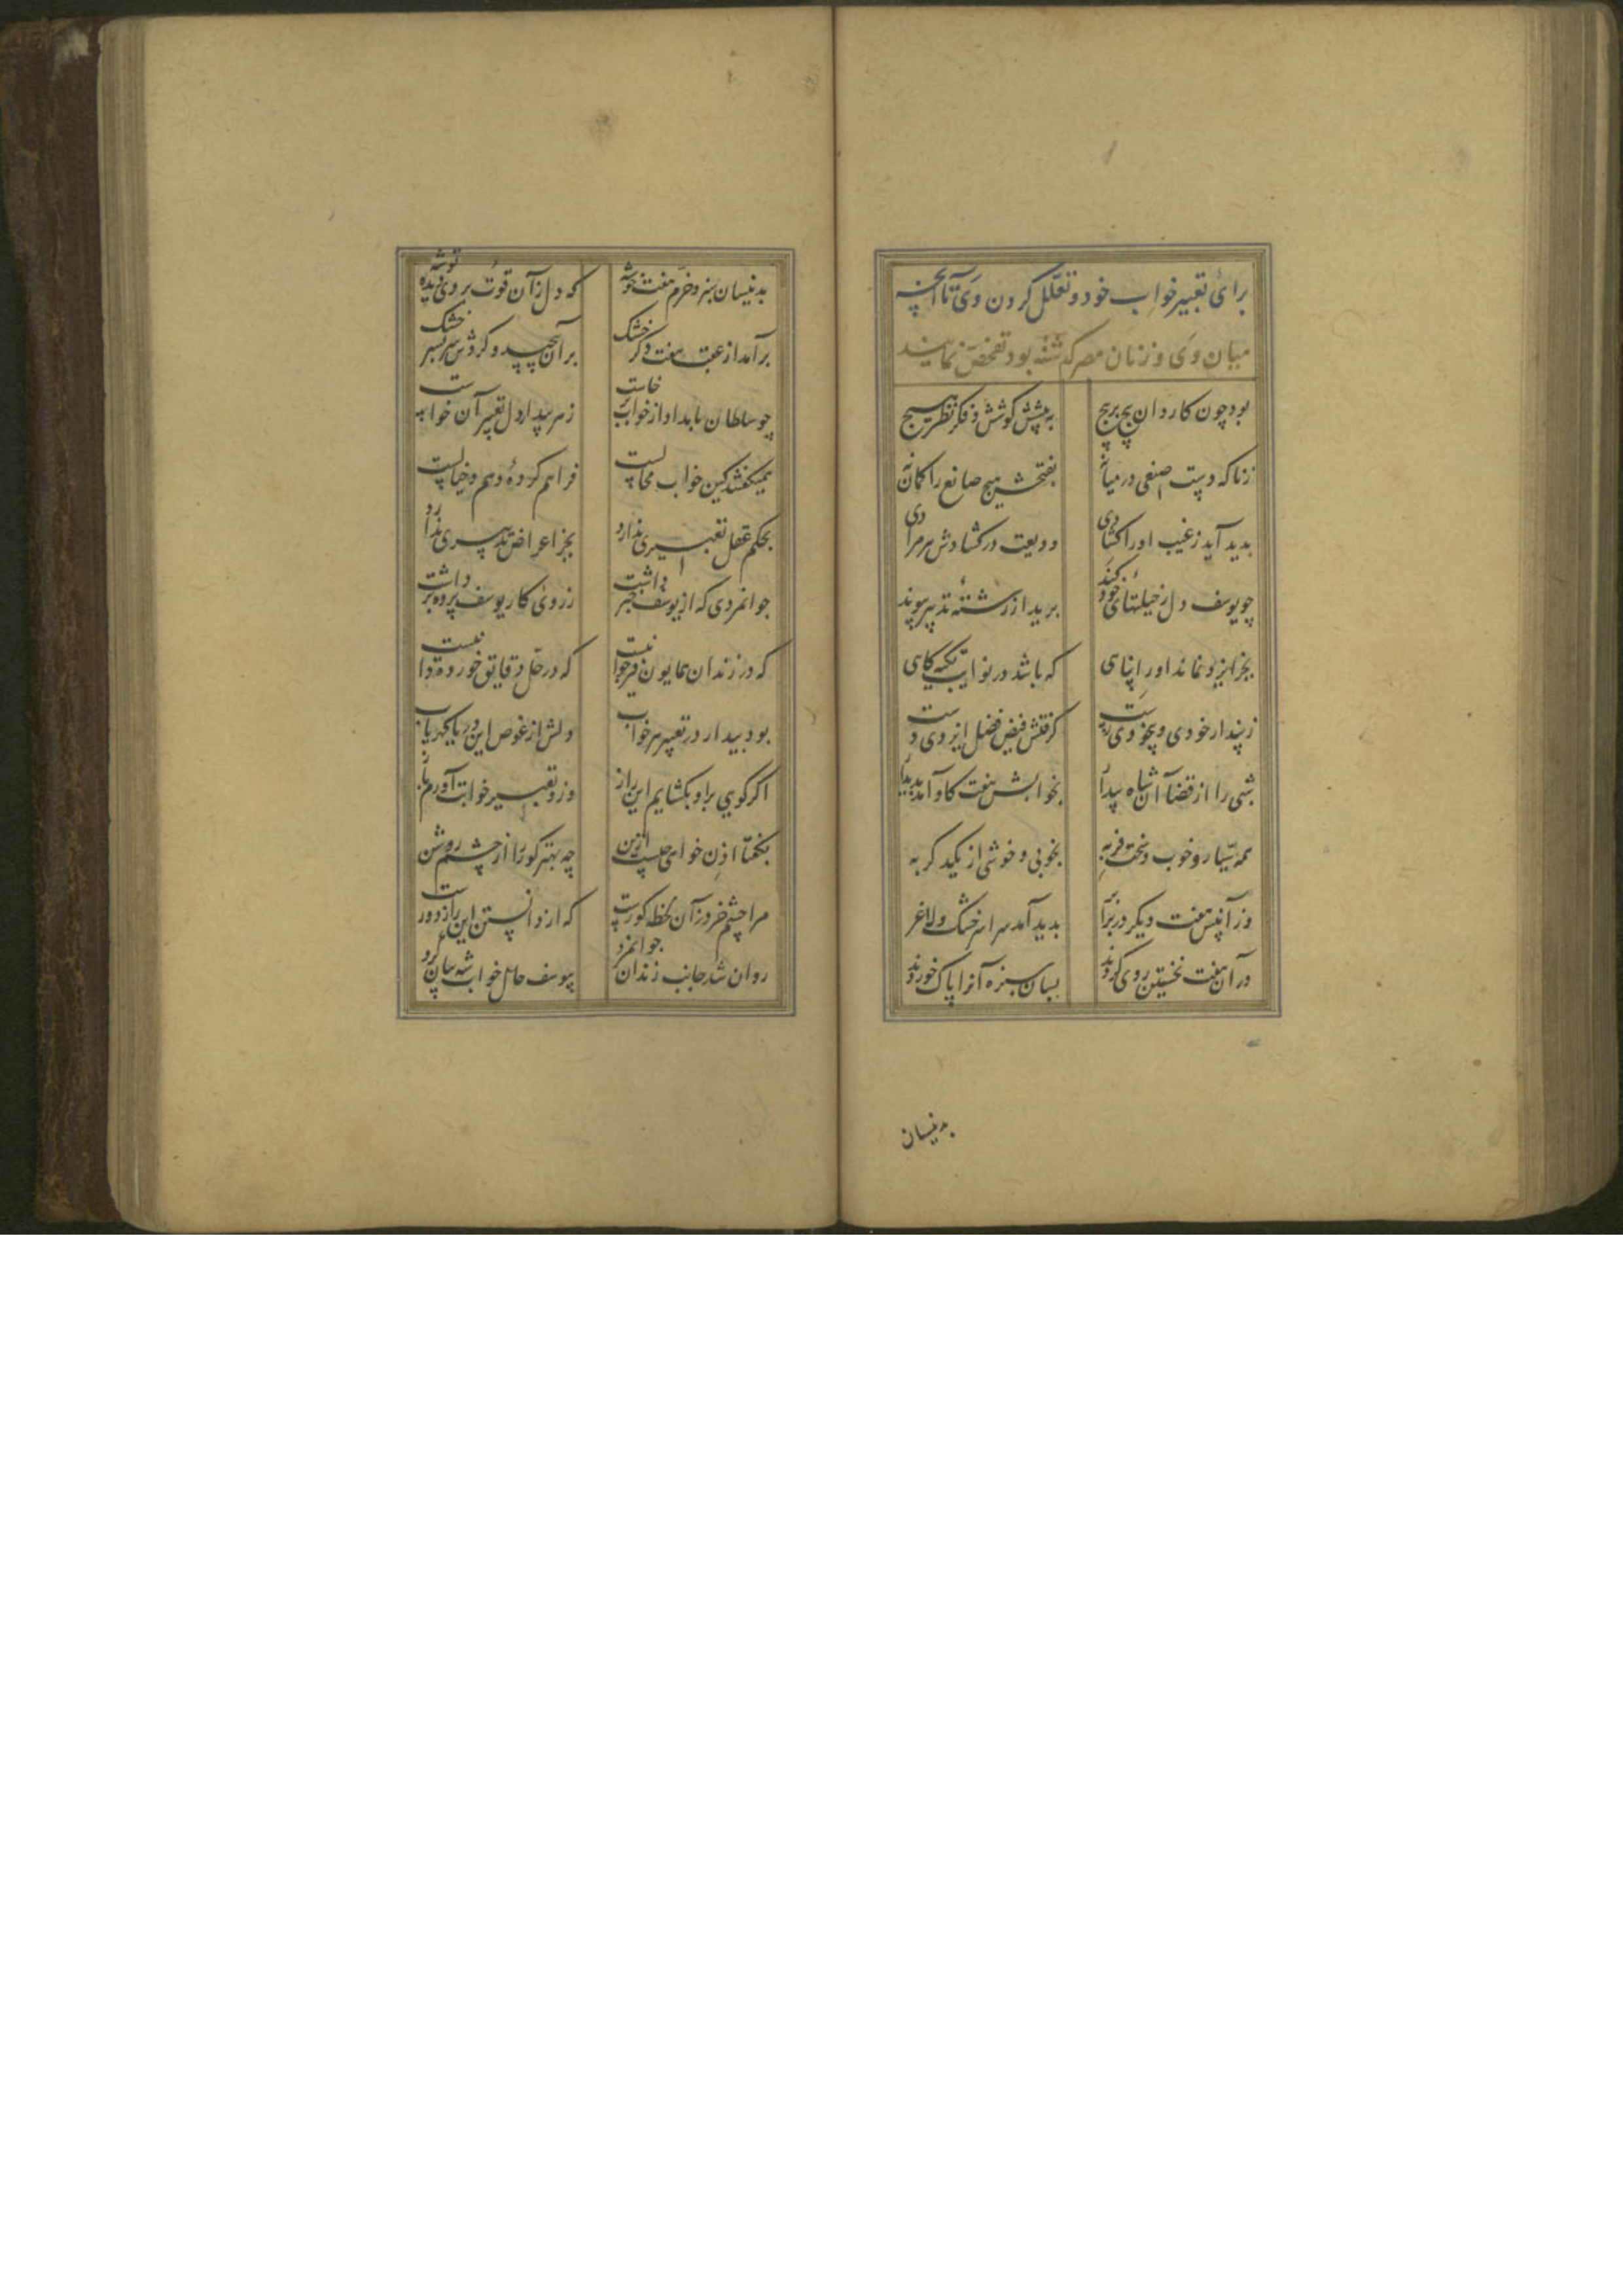 برای تعبیر خواب خود و تعلل کردن وی تا آنچه
میان وی و زنان مصر گذشته بود تفحص نمایند
بود چون کار دانا پیچ بر پیچ به پیشش کوشش و فکر و نظر هیچ
زنا که دست صنعی در میانه نفتحش هیچ صانع را گمان نه
بدید آید ز غیب او را گشادی ودیعت در گشادش هر مرادی
چو یوسف دل ز حیلتهای خود کند برید از رشته تدبیر پیوند
بجز ایزد نماند او را پناهی که باشد در نوایب تکیه‌گاهی
ز پندار خودی و بیخودی رست گرفتش فیض فضل ایزدی دست
شبی را از قضا آن شاه بیدار بخوابش هفت گاو آمد پدیدار
همه بسیار و خوب و سخت فربه بخوبی و خوشی از یکدگر به
وز آن پس هفت دیگر در برابر بدید آمد سراسر خشک و لاغر
در آن هفت نخستین روی کردند بسان سبزه آنرا پاک خوردند
بدنیسان
بدنیسان سبز و خرم هفت خوشه که دل زآن قوت بردی دیده توشه
برآمد از عقب هفت دگر خشک بر آن پیچید و کردش سر بسر خشک
چو سلطان بامداد از خواب برخاست ز هر بیدار دل تعبیر آن خواست
همیگفتند کین خواب محالست فراهم کرده وهم و خیالست
بحکم عقل تعبیری ندارد بجز اعراض تدبیری ندارد
جوانمردی که از یوسف خبر داشت ز روی کار یوسف پرده برداشت
که در زندان همایون فر جوانیست که در حل دقایق خورده دانیست
بود بیدار در تعبیر هر خواب دلش از غوص این دریا گهر یاب
اگر گویی براو بگشایم این راز وزو تعبیر خوابت آورم باز
بگفتا اذن خواهی چیست از من چه بهتر کور را از چشم روشن
مرا چشم خرد زآن لحظه کورست که از دانستن این راز دورست
روان شد جانب زندان جوانمرد بیوسف حال خواب شه بیان کرد